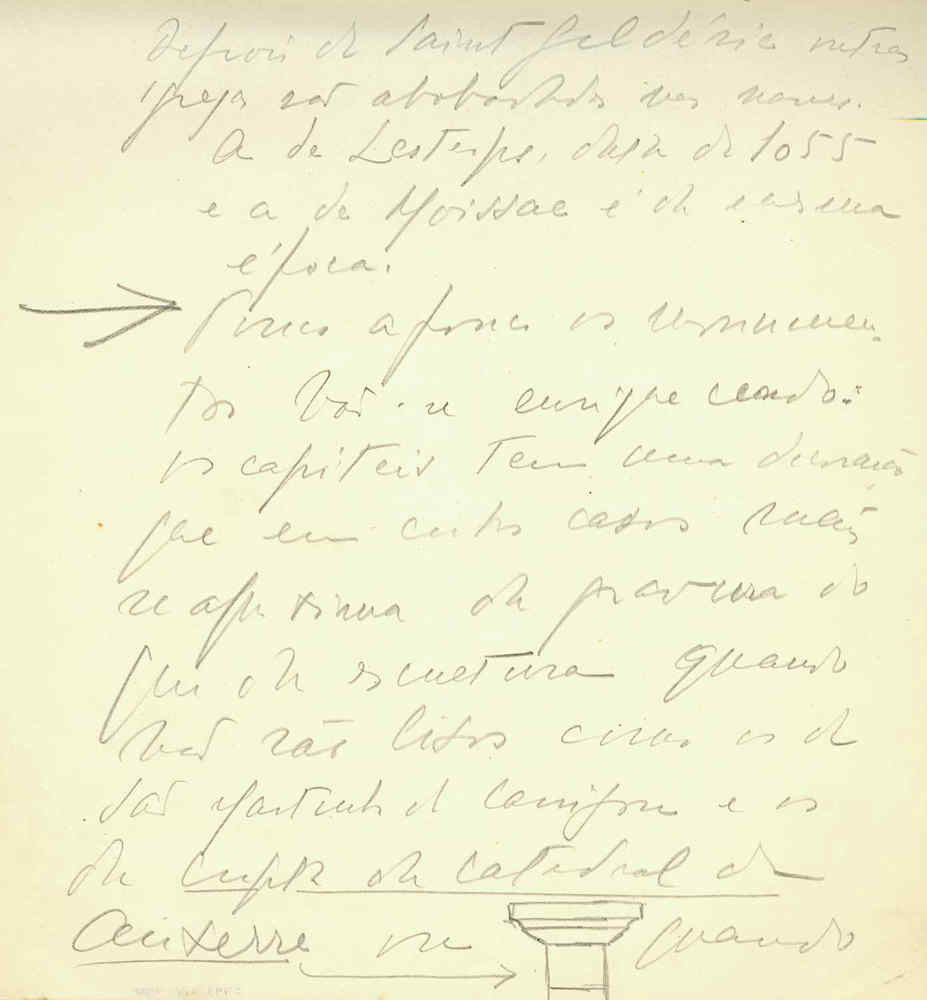 Depois de Saint Geldéric outras
igrejas são abobadadas nas naves.
A de Lesterps, data de 1055
e a de Moissac é da mesma
época.
Pouco a pouco os monumen-
tos vão-se enriquecendo:
os capiteis tem uma decoração
que em certos casos mais
se aproxima da gravura do
que da escultura quando
não são lisos como os de
São Martinho de Canigou e os
da cripta da catedral de
Auxerre ou quando